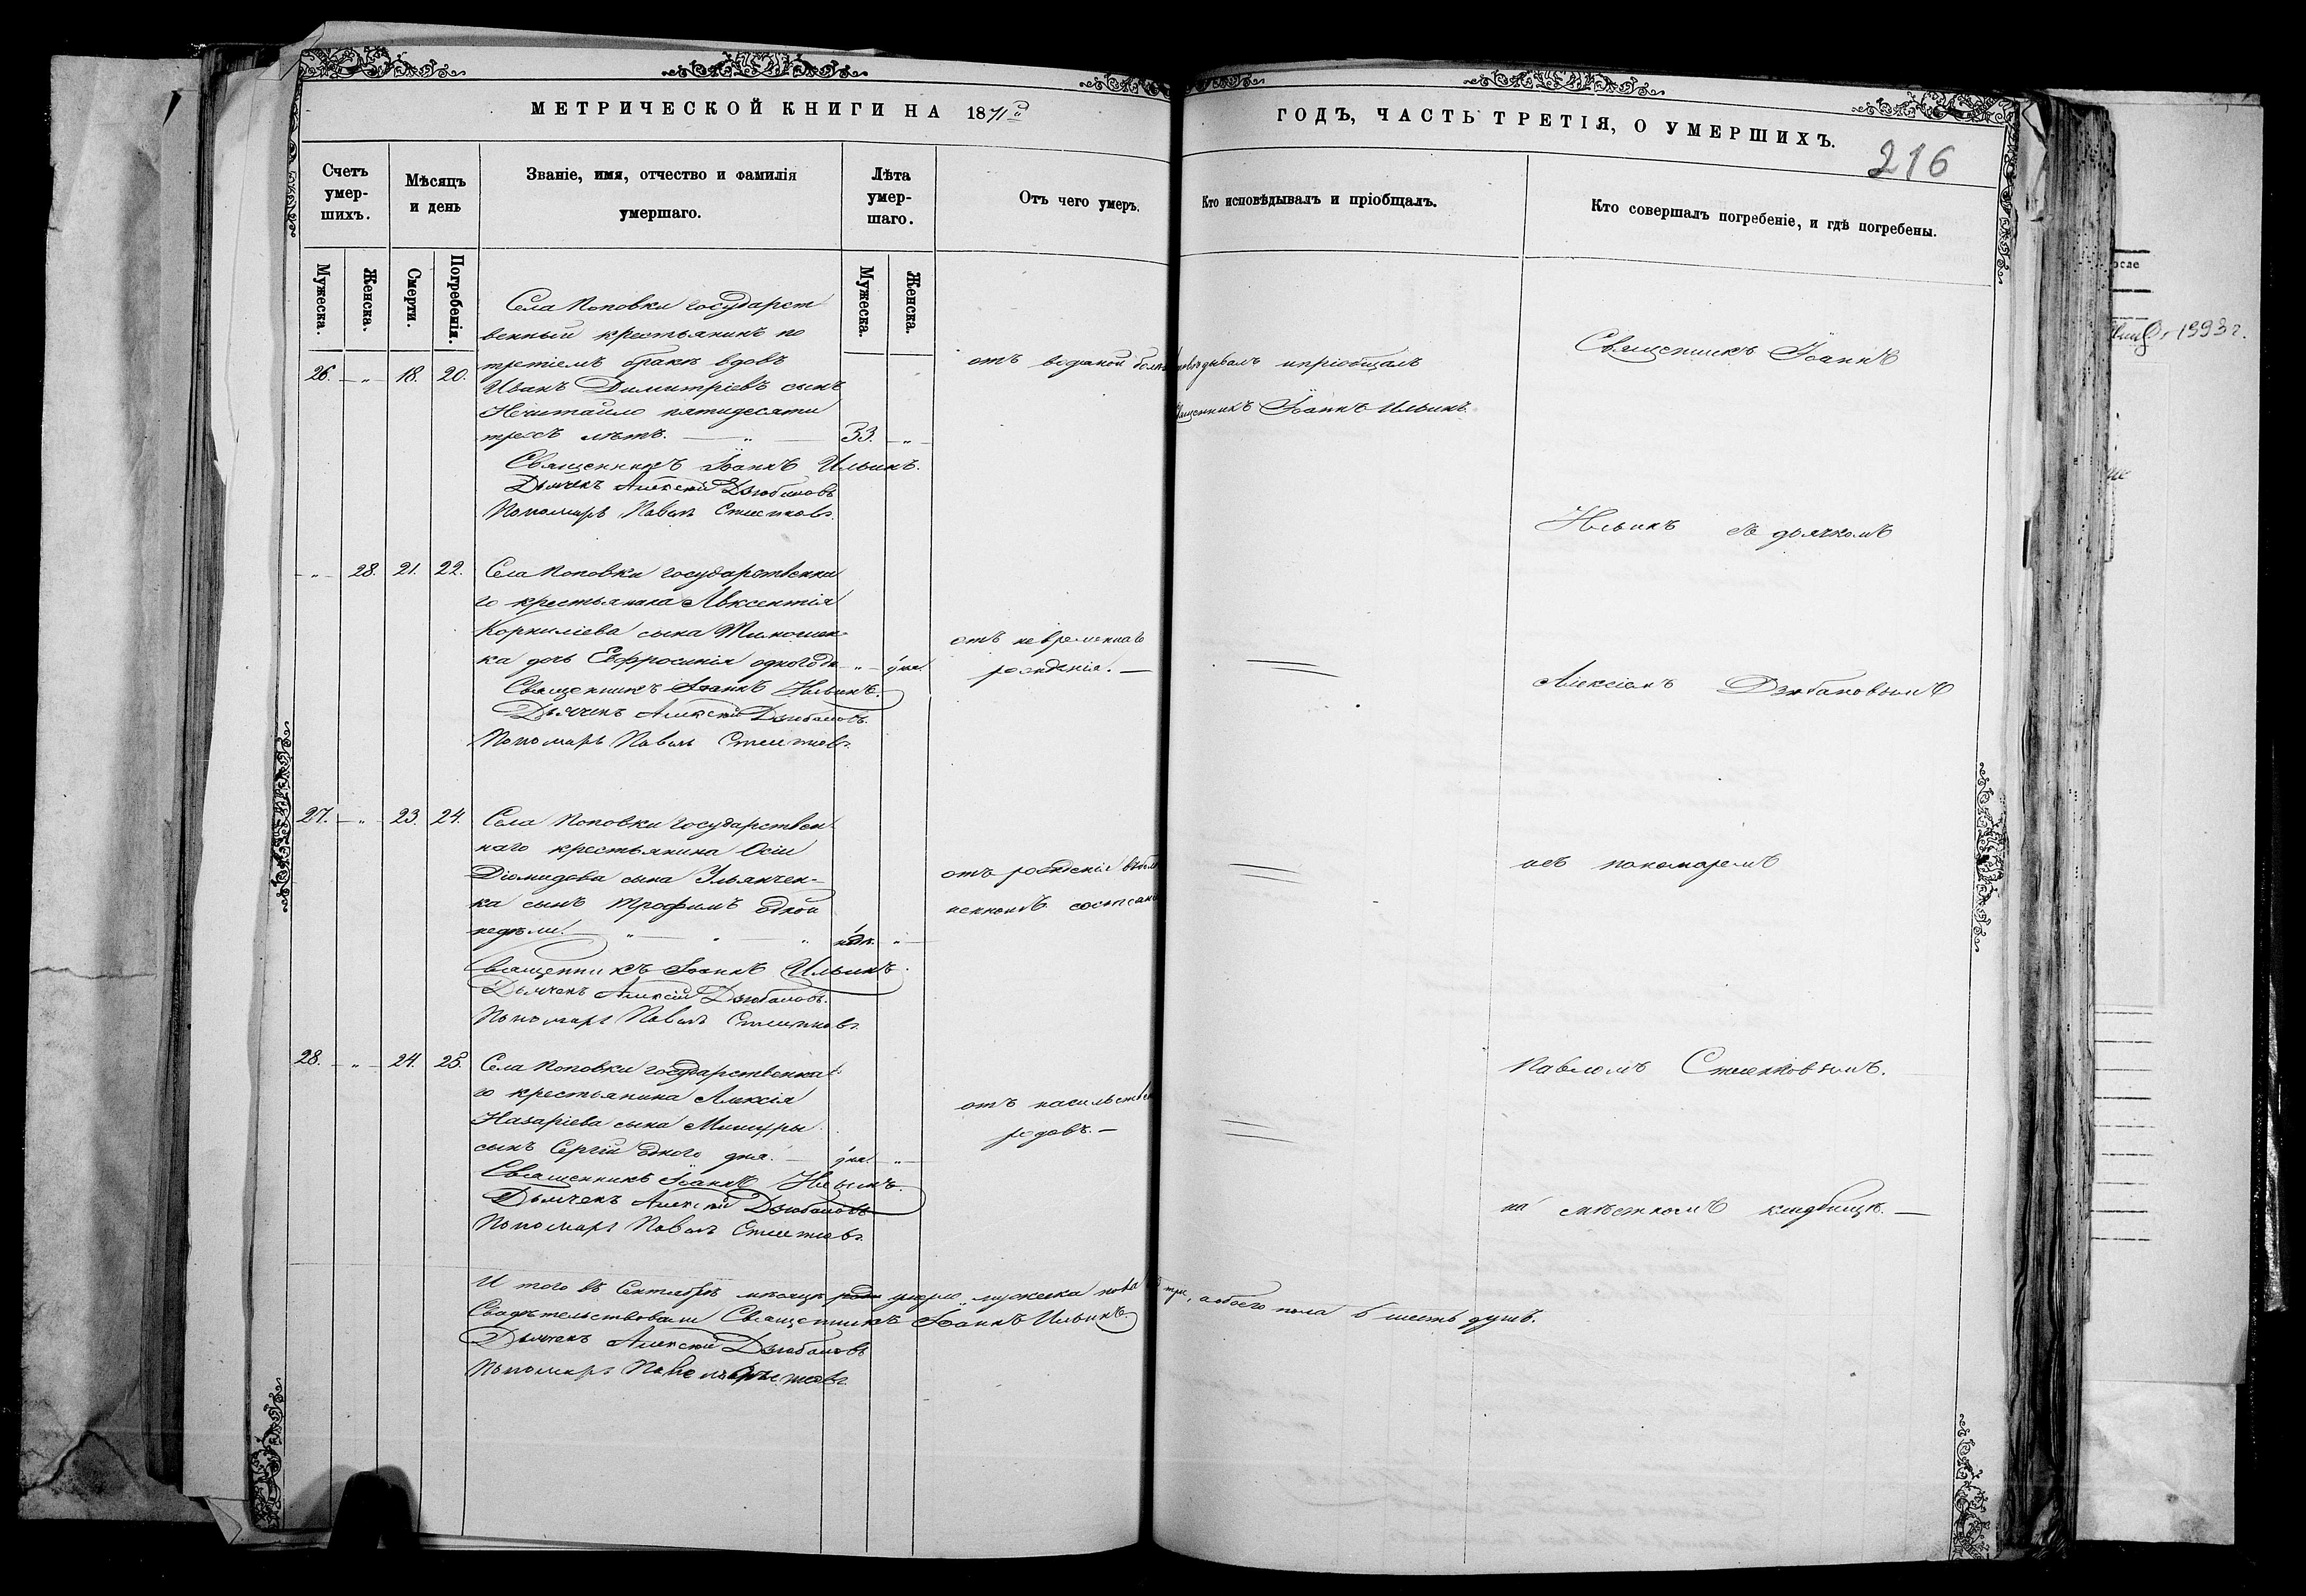 МЕТРИЧЕСКОЙ КНИГИ НА 1871й
ГОДЪ, ЧАСТЬ ТРЕТІЯ, О УМЕРШИХЪ.
216
Счетъ умер-шихъ.
Мѣсяцъ и день
Званіе, имя, отчество и фамилія
умершаго.
Лѣта умер-шаго.
Отъ чего умеръ.
Кто исповѣдывалъ и пріобщалъ.
Кто совершалъ погребеніе, и гдѣ погребены.
Мужеска.
Женска.
Смерти.
Погребенія.
Мужеска.
Женска.
Села Поповки государст
венный крестьянинъ по
третіемъ бракѣ вдовъ
26. — „ — 18. 20.
Иванъ Димитріевъ сынъ
Нечитайло пятидесяти
трехъ лѣтъ. — „ — 53. — „ —
отъ водяной
исповѣдывалъ и пріобщалъ
Священникъ Іоаннъ Ильинъ
Священникъ Іоаннъ Ильинъ.
Дьячекъ Алексій Дзюбановъ
Пономарь Павелъ
— „ — 28. 21. 22. Села Поповки государственна
го крестьянина Авксентія
Корниліева сына
ка дочь Евфросинія одного дн — „ — 1 дня.
отъ невременнаго
рожденія. —
Священникъ Іоаннъ Ильинъ.
Дьячекъ Алексій Дзюбановъ.
Пономарь Павелъ
27. — „ — 23. 24. Села Поповки государствен
наго крестьянина Осіи
Діомидова сына Ульянчен-
ка сынъ Трофимъ одной
недѣли. — „ — „ — „ 1 нед. „ —
отъ рожденія въ
Священникъ Іоаннъ Ильинъ.
Дьячекъ Алексій Дзюбановъ.
Пономарь Павелъ
28. — „ — 24. 25. Села Поповки государственна
го крестьянина Алексія
Назаріева сына Мишуры
сынъ Сергій одного дня. — 1 дня. „ —
отъ насильствен
родовъ. —
Священникъ Іоаннъ Ильинъ.
Дьячекъ Алексій Дзюбановъ
Пономарь Павелъ
И того въ Сентябрѣ мѣсяцѣ умерло мужеска пола три, а обоего пола 6 шесть душъ.
Свидѣтельствовали Священникъ Іоаннъ Ильинъ
Дьячекъ Алексій Дзюбановъ
Пономарь
Священникъ Іоаннъ
Ильинъ съ дьячкомъ
Алексіемъ Дзюбановымъ
и съ пономаремъ
Павломъ
на мѣстномъ кладбищѣ. —
1993 г.